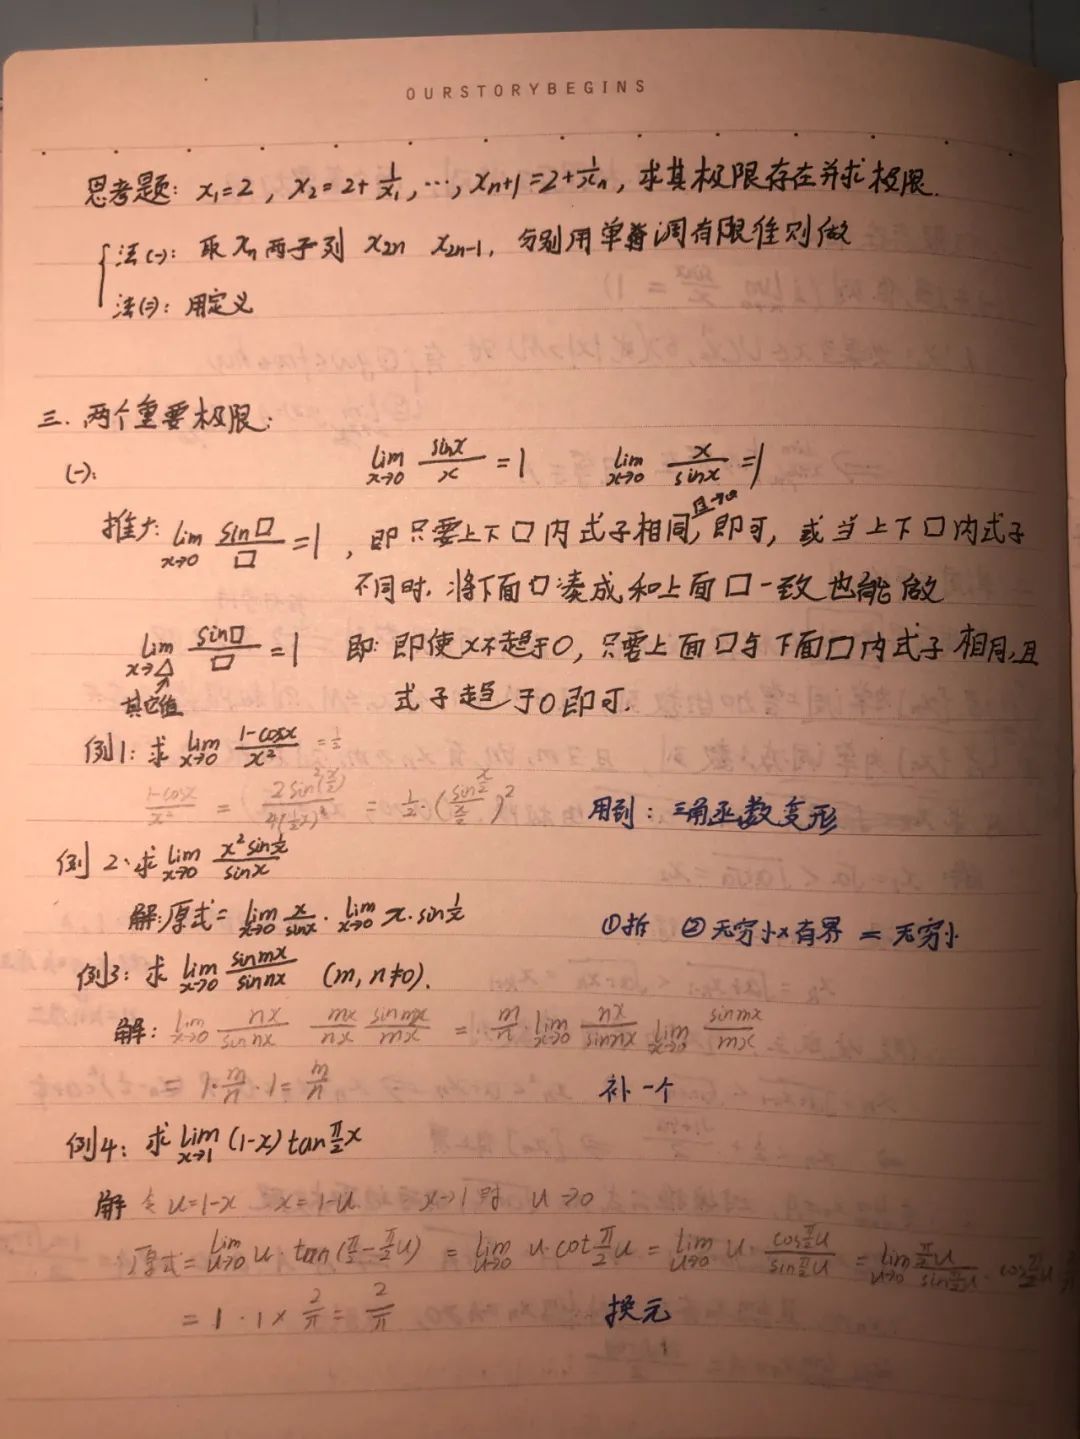 OURSTORYBEGINS
思考题: x₁=2, x₂=2+1/x₁, …, xₙ₊₁=2+1/xₙ, 求其极限存在并求极限.
法(一): 取 xₙ 两子列 x₂ₙ x₂ₙ₋₁, 分别用单调有限准则做
法(二): 用定义
三. 两个重要极限:
(一): lim x→0 sinx/x = 1 lim x→0 x/sinx = 1
推广: lim x→0 sin□/□ = 1, 即只要上下□内式子相同, 且→0 即可, 或当上下□内式子
不同时, 将下面□凑成和上面□一致也能做
lim x→△ sin□/□ = 1 即: 即使x不趋于0, 只要上面□与下面□内式子相同, 且
其它值 式子趋于0即可.
例1: 求 lim x→0 (1-cosx)/x² = 1/2
(1-cosx)/x² = 2sin²(x/2)/4(½x)² = 1/2·(sin(x/2)/(x/2))² 用到: 三角函数变形
例2: 求 lim x→0 (x² sin 1/x)/sinx
解: 原式= lim x→0 x/sinx · lim x→0 x·sin 1/x ①拆 ②无穷小×有界 = 无穷小
例3: 求 lim x→0 sinmx/sinnx (m, n≠0).
解: lim x→0 nx/sinnx mx/nx sinmx/mx = m/n · lim x→0 nx/sinnx lim x→0 sinmx/mx
= 1·m/n·1 = m/n 补一个
例4: 求 lim x→1 (1-x) tan π/2 x
解 令 u=1-x x=1-u. x→1时 u→0
原式= lim u→0 u·tan(π/2-π/2 u) = lim u→0 u·cot π/2 u = lim u→0 u·(cos π/2 u)/(sin π/2 u) = lim u→0 (π/2 u)/(sin π/2 u) · cos π/2 u · 2/π
= 1·1×2/π = 2/π 换元